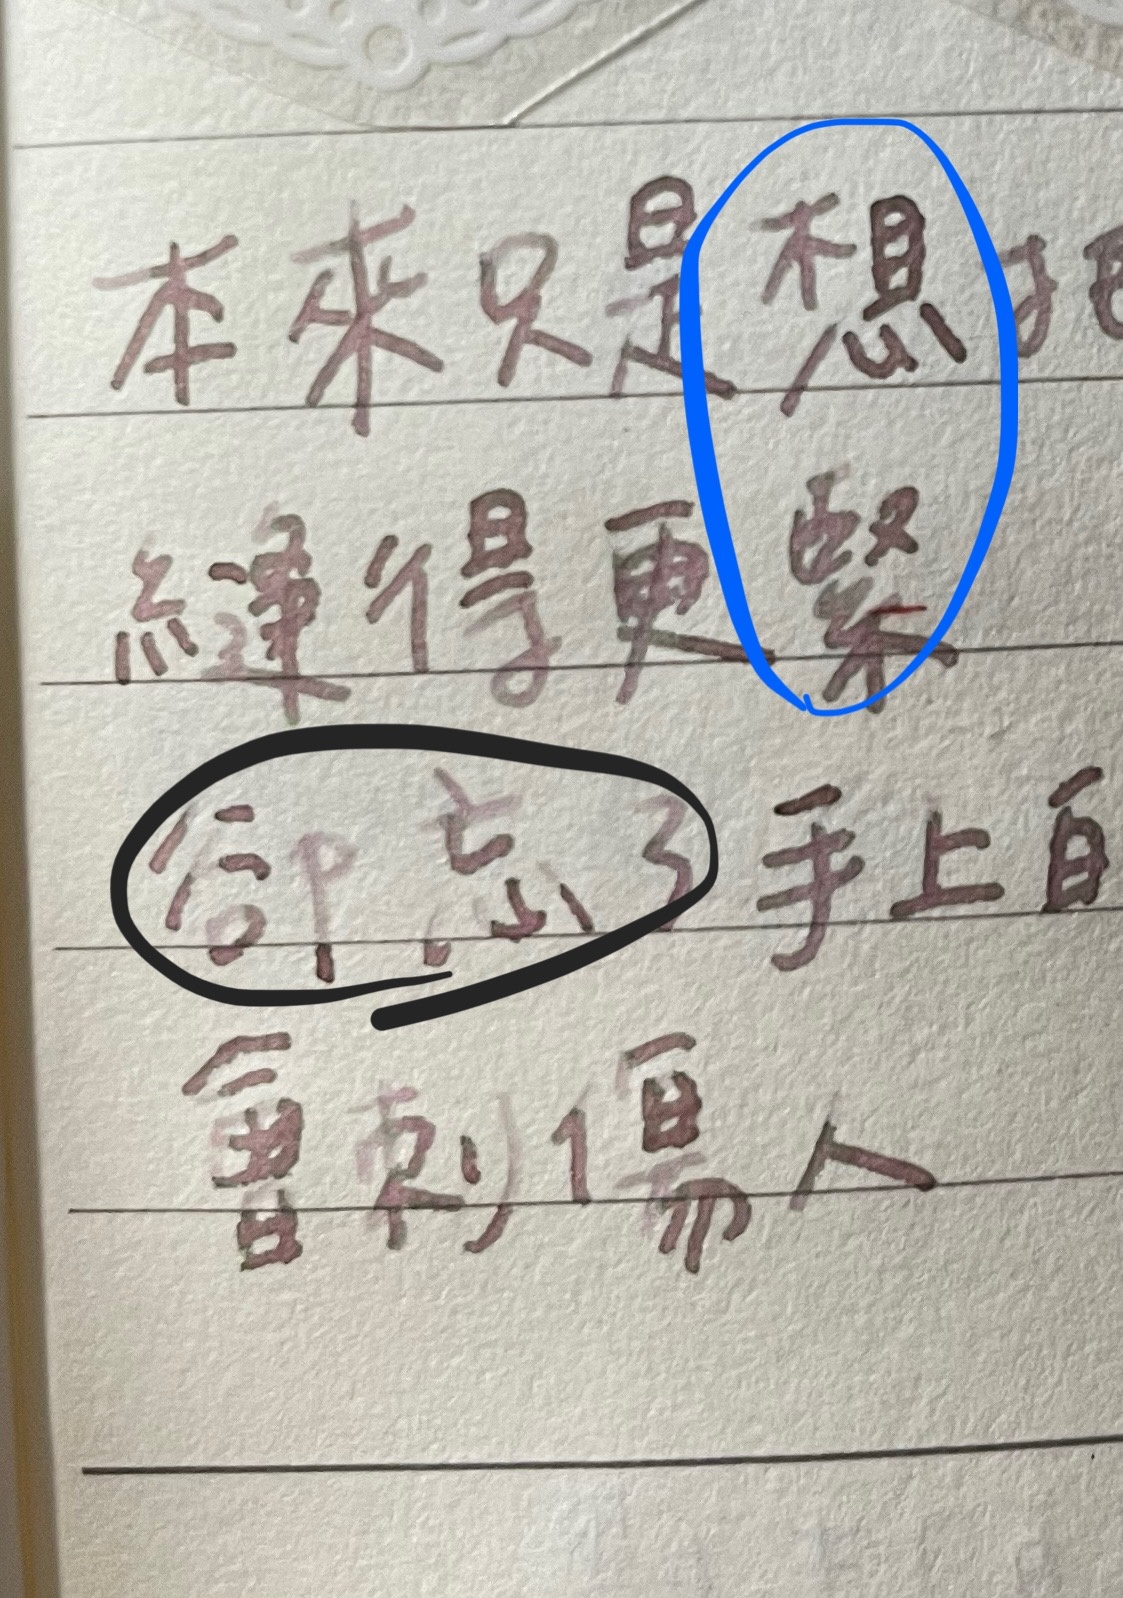 本來只是想把
縫得更緊
卻忘了手上
會刺傷人